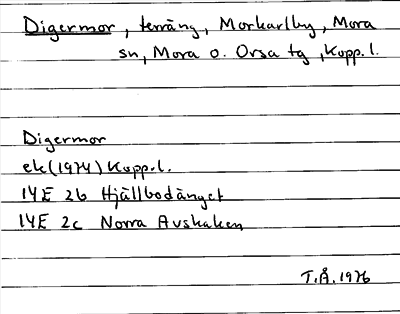 Digermor, terräng, Morkarlby, Mora
sn, Mora o. Orsa tg, Kopp. l.
Digermor
ek (1974) Kopp. l.
14E 2b Hjällbodänget
14E 2c Norra Avskaken
T.Å. 1976